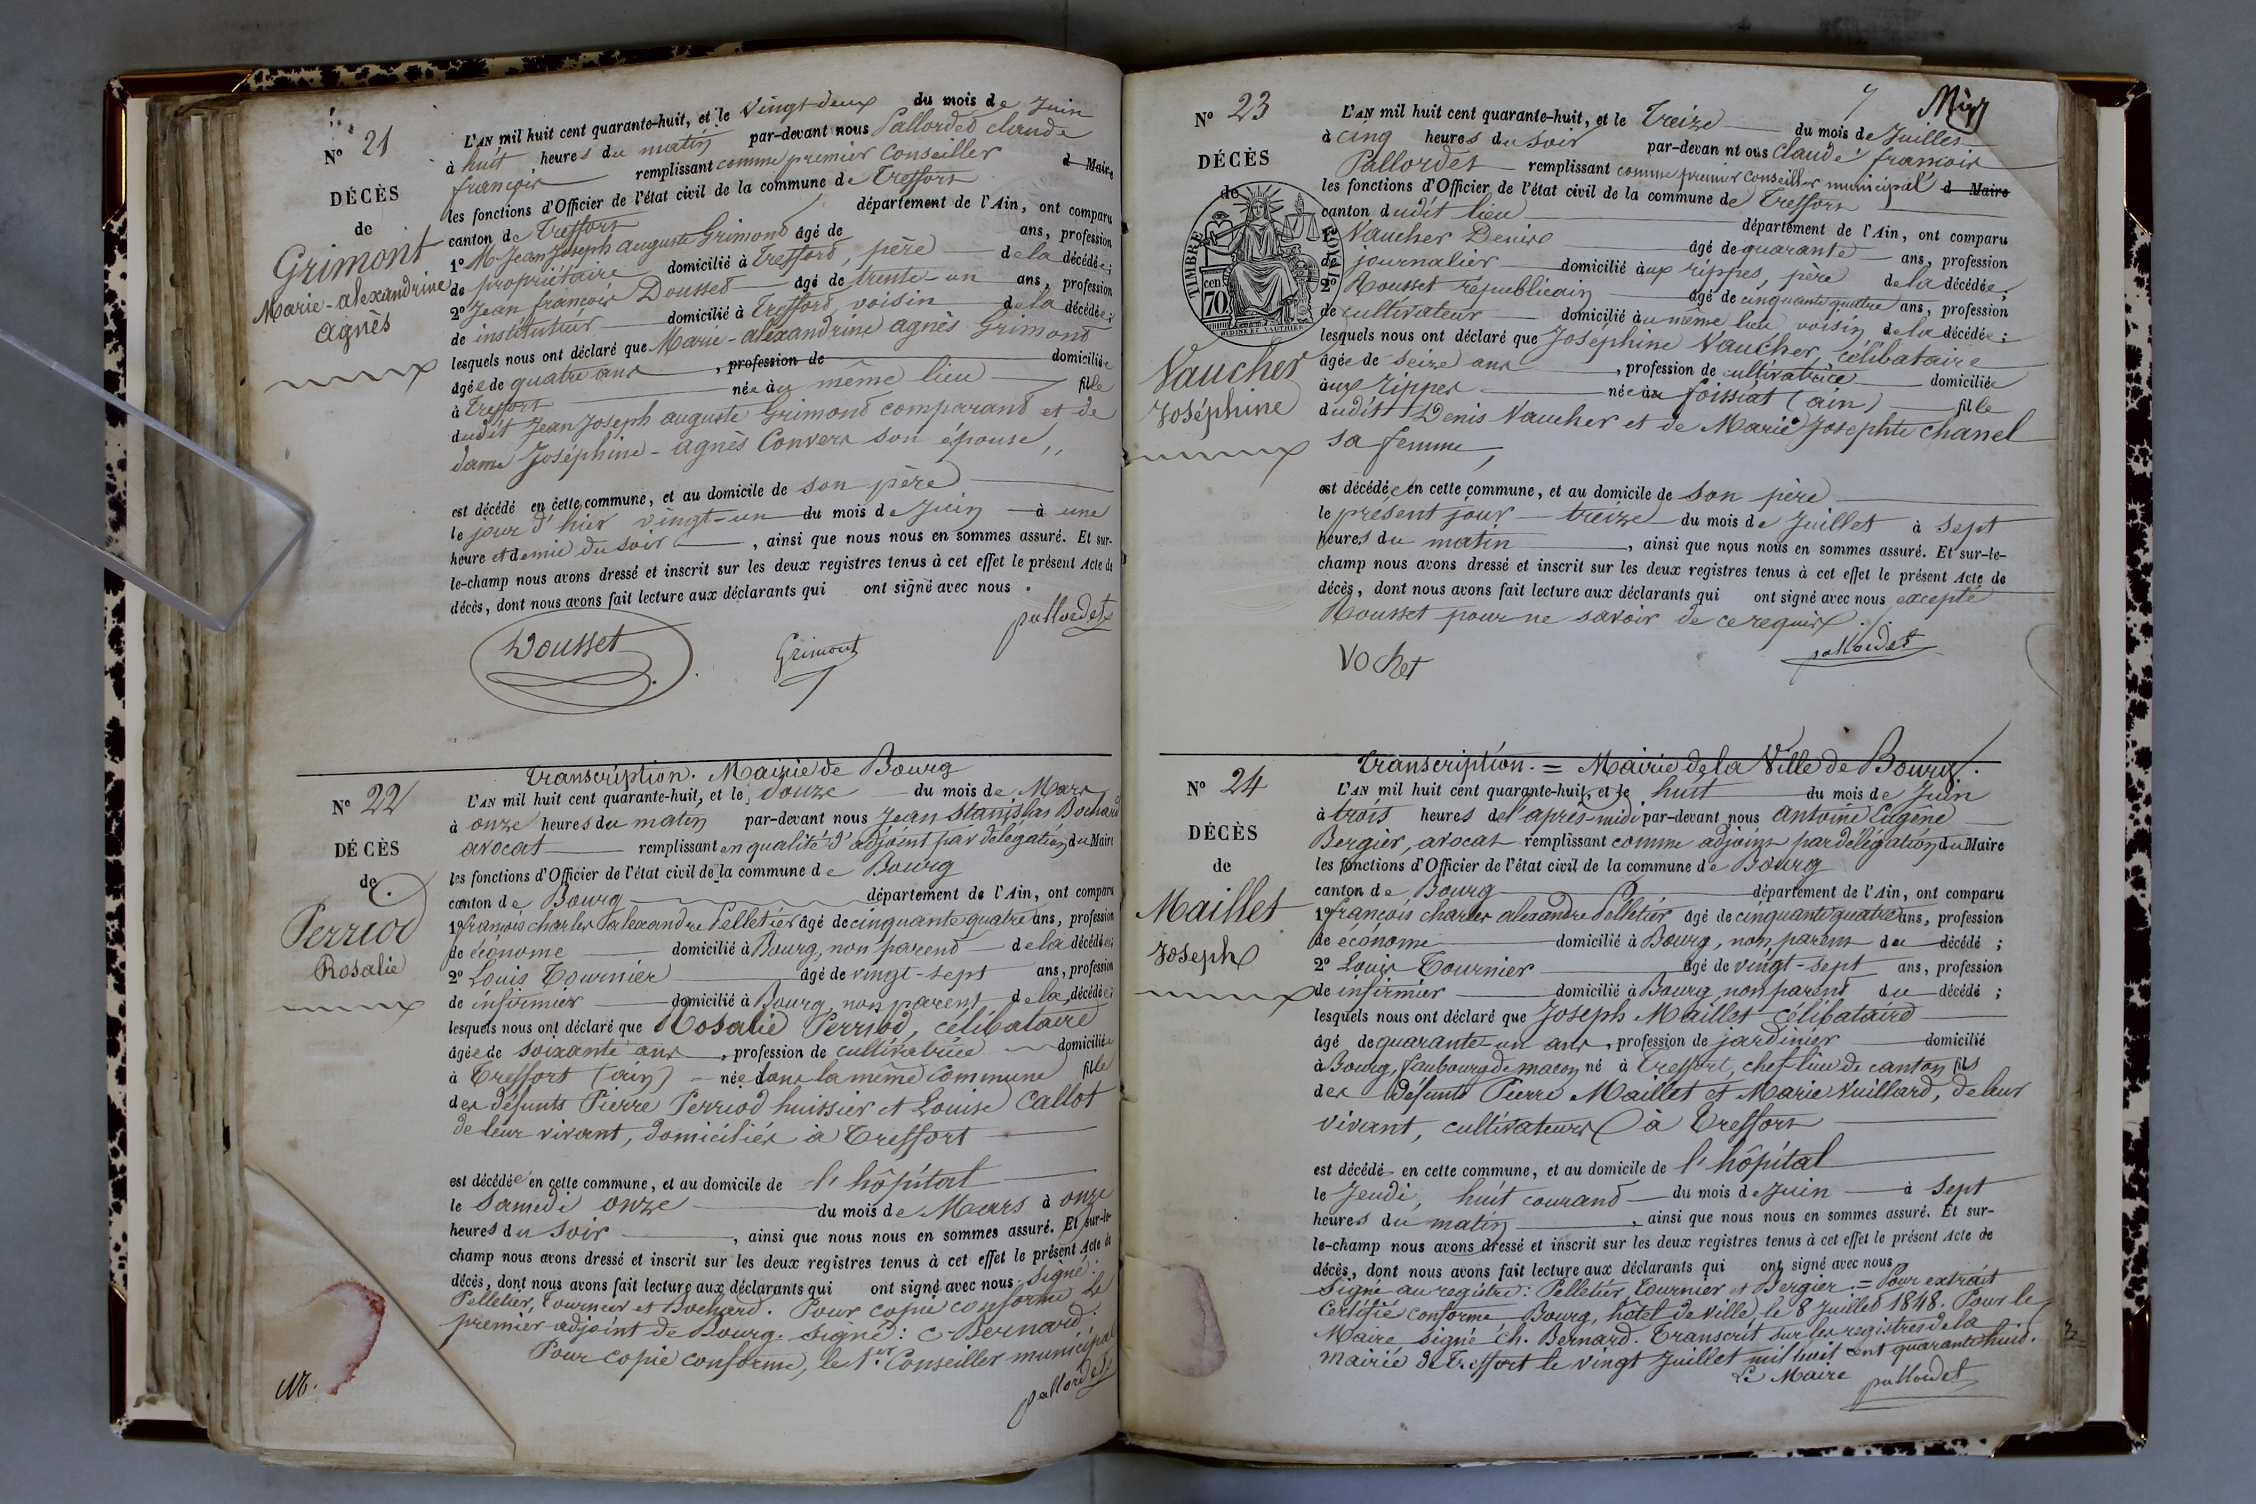 N° 21
DÉCÈS
de
Grimont
Marie-alexandrine
agnès
L'AN mil huit cent quarante-huit, et le Vingt deux du mois de Juin
à huit heures du matin par-devant nous Pallordet claude
françois remplissant comme premier Conseiller d Maire
les fonctions d'Officier de l'état civil de la commune de Treffort
canton de Treffort département de l'Ain, ont comparu
1° M Jean Joseph auguste Grimond âgé de ans, profession
de propriétaire domicilié à Trefford, père de la décédée;
2° Jean françois Dousset âgé de trente-un ans, profession
de instituteur domicilié à Trefford voisin de la décédée;
lesquels nous ont déclaré que Marie-alexandrine agnès Grimond
âgée de quatre ans, profession de domiciliée
à Treffort née au même lieu fille
dudit Jean Joseph auguste Grimond comparand et de
dame Joséphine-agnès Convers son épouse,,
est décédé en cette commune, et au domicile de son père
le jour d'hier vingt-un du mois de Juin à une
heure et demie du soir, ainsi que nous nous en sommes assuré. Et sur-
le-champ nous avons dressé et inscrit sur les deux registres tenus à cet effet le présent Acte de
décès, dont nous avons fait lecture aux déclarants qui ont signé avec nous.
pallordet
Dousset Grimont
Transcription. Mairie de Bourg
N° 22
DÉCÈS
de
Perriod
Rosalie
L'AN mil huit cent quarante-huit, et le douze du mois de Mars
à onze heures du matin par-devant nous Jean Stanislas Bochard
avocat remplissant en qualité d'adjoint par délégation du Maire
les fonctions d'Officier de l'état civil de la commune de Bourg
canton de Bourg département de l'Ain, ont comparu
1° françois charles alexandre Pelletier âgé de cinquante quatre ans, profession
de économe domicilié à Bourg, non parend de la décédée;
2° Louis Tournier âgé de vingt-sept ans, profession
de infirmier domicilié à Bourg, non parent, de la décédée;
lesquels nous ont déclaré que Rosalie Perriod, célibataire
âgée de soixante ans, profession de cultivatrice domiciliée
à Treffort (ain) née dans la même commune fille
des défunts Pierre Perriod huissier et Louise Callot
de leur vivant, domiciliés à Treffort
est décédée en cette commune, et au domicile de l'hôpital
le Samedi onze du mois de Mars à onze
heures du soir, ainsi que nous nous en sommes assuré. Et sur-le-
champ nous avons dressé et inscrit sur les deux registres tenus à cet effet le présent Acte de
décès, dont nous avons fait lecture aux déclarants qui ont signé avec nous. Signé:
Pelletier, Tournier et Bochard. Pour copie conforme Le
premier adjoint de Bourg. signé: C. Bernard.
Pour copie conforme, le 1.er Conseiller municipal
pallordet
N° 23
DÉCÈS
de
TIMBRE ROYAL
70 cen
Vaucher
Joséphine
7
L'AN mil huit cent quarante-huit, et le Treize du mois de Juillet
à cinq heures du soir par-devan nt ous claude françois
Pallordet remplissant comme premier conseiller municipal d Maire
les fonctions d'Officier de l'état civil de la commune de Treffort
canton dudit lieu département de l'Ain, ont comparu
1° Vaucher Denis âgé de quarante ans, profession
de journalier domicilié aux rippes, père de la décédée;
2° Rousset républicain âgé de cinquante quatre ans, profession
de cultivateur domicilié au même lieu voisin de la décédée;
lesquels nous ont déclaré que Joséphine Vaucher, célibataire
âgée de seize ans, profession de cultivatrice domiciliée
aux rippes née à foissiat (ain) fille
dudit Denis Vaucher et de Marie Josephte Chanel
sa femme,
est décédée en cette commune, et au domicile de son père
le présent jour treize du mois de Juillet à sept
heures du matin, ainsi que nous nous en sommes assuré. Et sur-le-
champ nous avons dressé et inscrit sur les deux registres tenus à cet effet le présent Acte de
décès, dont nous avons fait lecture aux déclarants qui ont signé avec nous excepté
Rousset pour ne savoir de ce requis
vochet pallordet
Transcription. = Mairie de la Ville de Bourg.
N° 24
DÉCÈS
de
Maillet
Joseph
L'AN mil huit cent quarante-huit, et le huit du mois de Juin
à trois heures de l'après-midi par-devant nous antoine Eugène
Bergier, avocat remplissant comme adjoint par délégation du Maire
les fonctions d'Officier de l'état civil de la commune de Bourg
canton de Bourg département de l'Ain, ont comparu
1° françois charles alexandre Pelletier âgé de cinquante quatre ans, profession
de économe domicilié à Bourg, non parent du décédé;
2° Louis Tournier âgé de vingt-sept ans, profession
de infirmier domicilié à Bourg, non parent du décédé;
lesquels nous ont déclaré que Joseph Maillet célibataire
âgé de quarante-un ans, profession de jardinier domicilié
à Bourg, faubourg de macon né à Treffort, chef-lieu de canton fils
des défunts Pierre Maillet et Marie Vuillard, de leur
vivant, cultivateurs à Treffort
est décédé en cette commune, et au domicile de l'hôpital
le Jeudi, huit courand du mois de Juin à sept
heures du matin, ainsi que nous nous en sommes assuré. Et sur-
le-champ nous avons dressé et inscrit sur les deux registres tenus à cet effet le présent Acte de
décès, dont nous avons fait lecture aux déclarants qui ont signé avec nous
Signé au registre: Pelletier, Tournier et Bergier. = Pour extrait
Certifié conforme Bourg, hôtel de ville, le 8 Juillet 1848. Pour le
Maire signé ch. Bernard. Transcrit sur les registres de la
mairie de Treffort le vingt Juillet mil huit cent quarante huit.
Le Maire pallordet